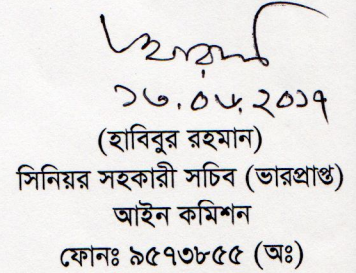 ১৩.০৮.২০১৭
(হাবিবুর রহমান)
সিনিয়র সহকারী সচিব (ভারপ্রাপ্ত)
আইন কমিশন
ফোনঃ ৯৫৭৩৮৫৫ (অঃ)